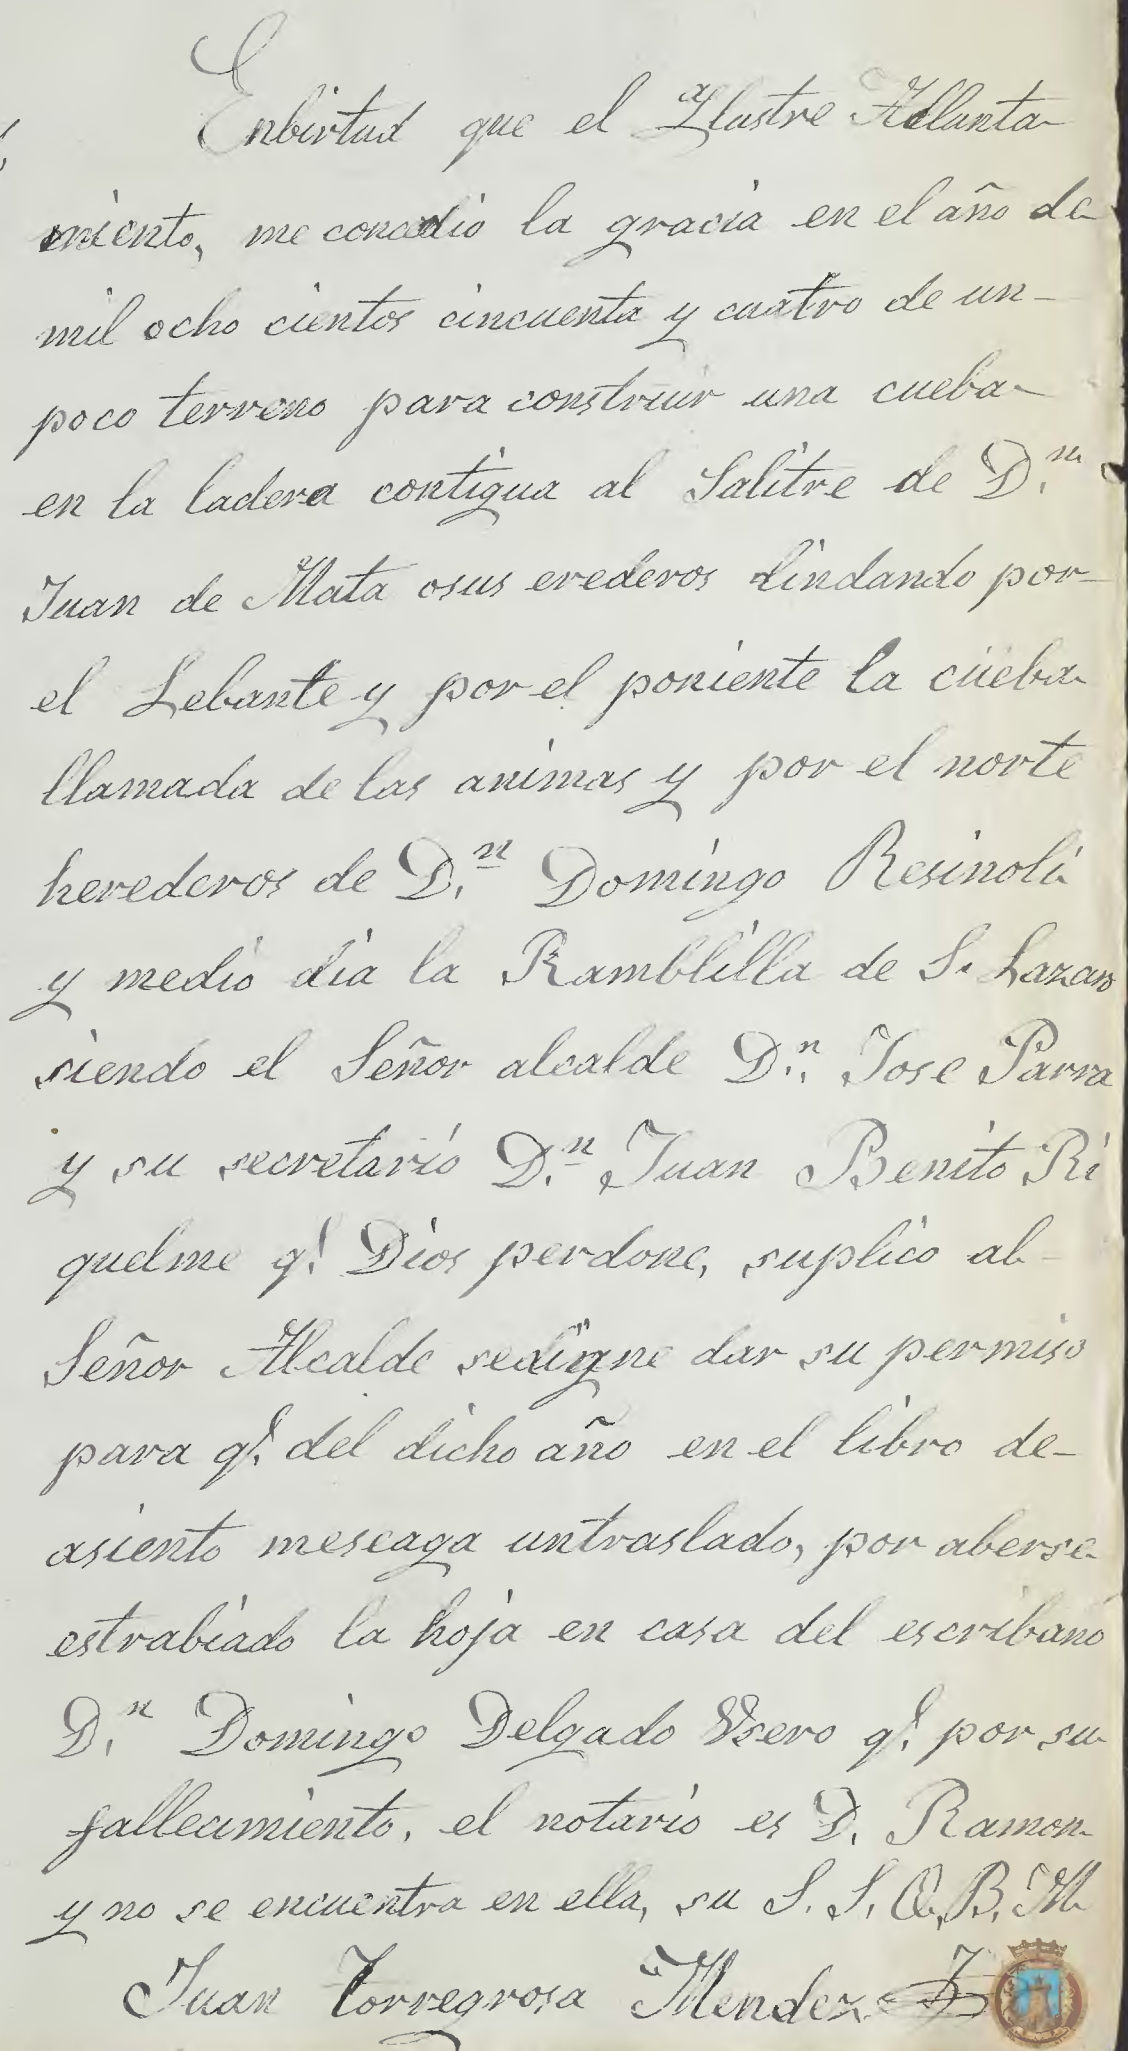 Enbirtud que el Yllustre Allunta-
miento, me concedio la gracia en el año de
mil ocho cientos cincuenta y cuatro de un-
poco terreno para construir una cueba-
en la ladera contigua al Salitre de D.n
Juan de Mata osus erederos lindando por-
el Lebante y por el poniente la cueba
llamada de las animas y por el norte
herederos de D.n Domingo Resinoli
y medio dia la Ramblilla de S. Lazaro
siendo el Señor alcalde D.n Jose Parra
y su secretario D.n Juan Benito Ri
quelme q.e Dios perdone, suplico al-
Señor Alcalde sedigne dar su permiso
para q.e del dicho año en el libro de-
asiento meseaga untraslado, por aberse
estrabiado la hoja en casa del escribano
D.n Domingo Delgado Usero q.e por su
fallecimiento, el notario es D. Ramon
y no se encuentra en ella, su S. S. Q. B. M
Juan Torregrosa Mendez